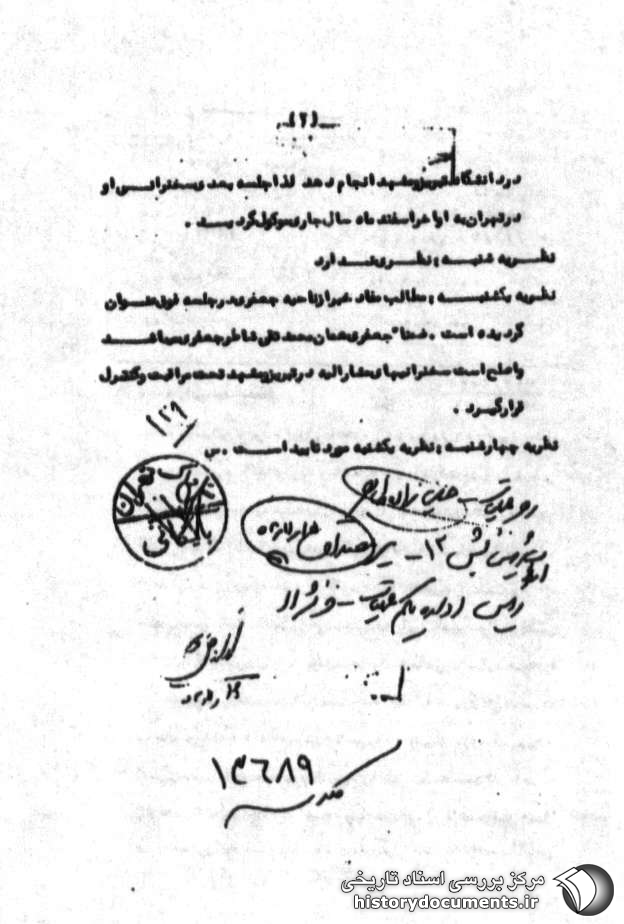 (۲)
در دانشگاه تبریز و مشهد انجام دهد لذا جلسه بعدی سخنرانی او
در تهران به اواخر اسفند ماه سال جاری موکول گردید .
نظریه شنبه : نظری ندارد
نظریه یکشنبه : مطالب مفاد خبر از ناحیه جعفری در جلسه فوق عنوان
گردیده است . ضمنا" جعفری همان محمد تقی شاطر جعفری میباشد
واصلح است سخنرانیهای مشارالیه در تبریز و مشهد تحت مراقبت و کنترل
قرار گیرد .
نظریه چهارشنبه : نظریه یکشنبه مورد تایید است . س
۱۲۹
بایگانی
رهبر عملیات
رئیس بخش ۱۲ -
رئیس اداره یکم عملیات -
۱۳۶۸۹
مرکز بررسی اسناد تاریخی
historydocuments.ir